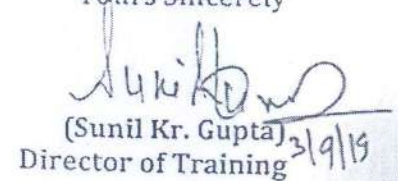 Yours Sincerely
(Sunil Kr. Gupta) 3/9/19
Director of Training